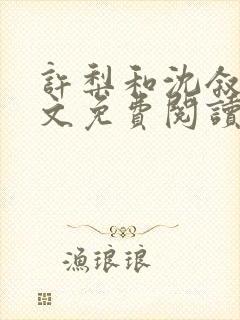 許梨和沈叙
文免費閱讀
漁琅琅